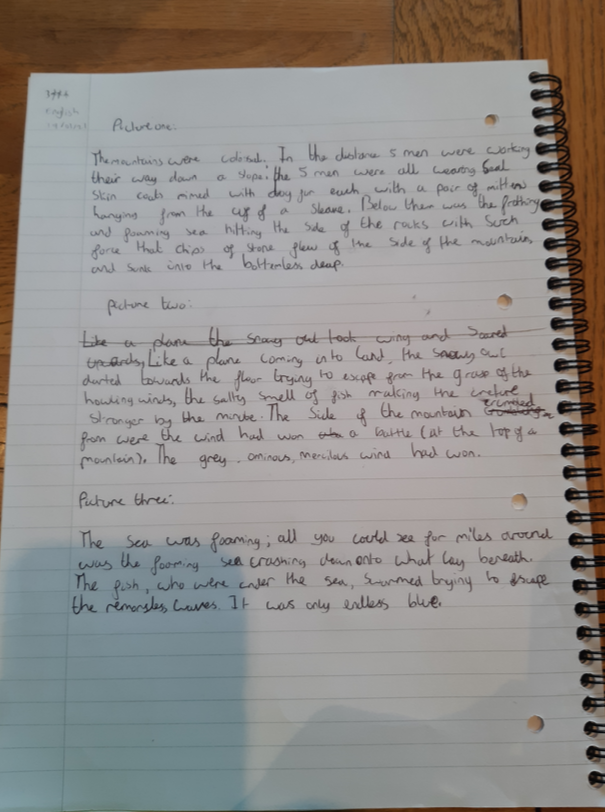 English
Picture one:
The mountains were colosal. In the distance 5 men were working
their way down a slope: the 5 men were all wearing Seal
skin coats mixed with dog fur each with a pair of mittens
hanging from the cuf of a sleave. Below them was the frothing
and foaming sea hitting the side of the rocks with such
force that chips of stone flew of the side of the mountains
and sunk into the bottemless deap.
Picture two:
Like a plane the snowy owl took wing and soared
upwards, Like a plane coming into land, the snowy owl
darted towards the floor trying to escape from the grasp of the
howling winds, the salty smell of fish making the
stronger by the minute. The side of the mountain
from were the wind had won a battle (at the top of a
mountain). The grey, ominous, mercilous wind had won.
Picture three:
The sea was foaming; all you could see for miles around
was the foaming sea crashing down onto what lay beneath.
The fish, who were under the sea, swimmed trying to escape
the remorsless waves. It was only endless blue.